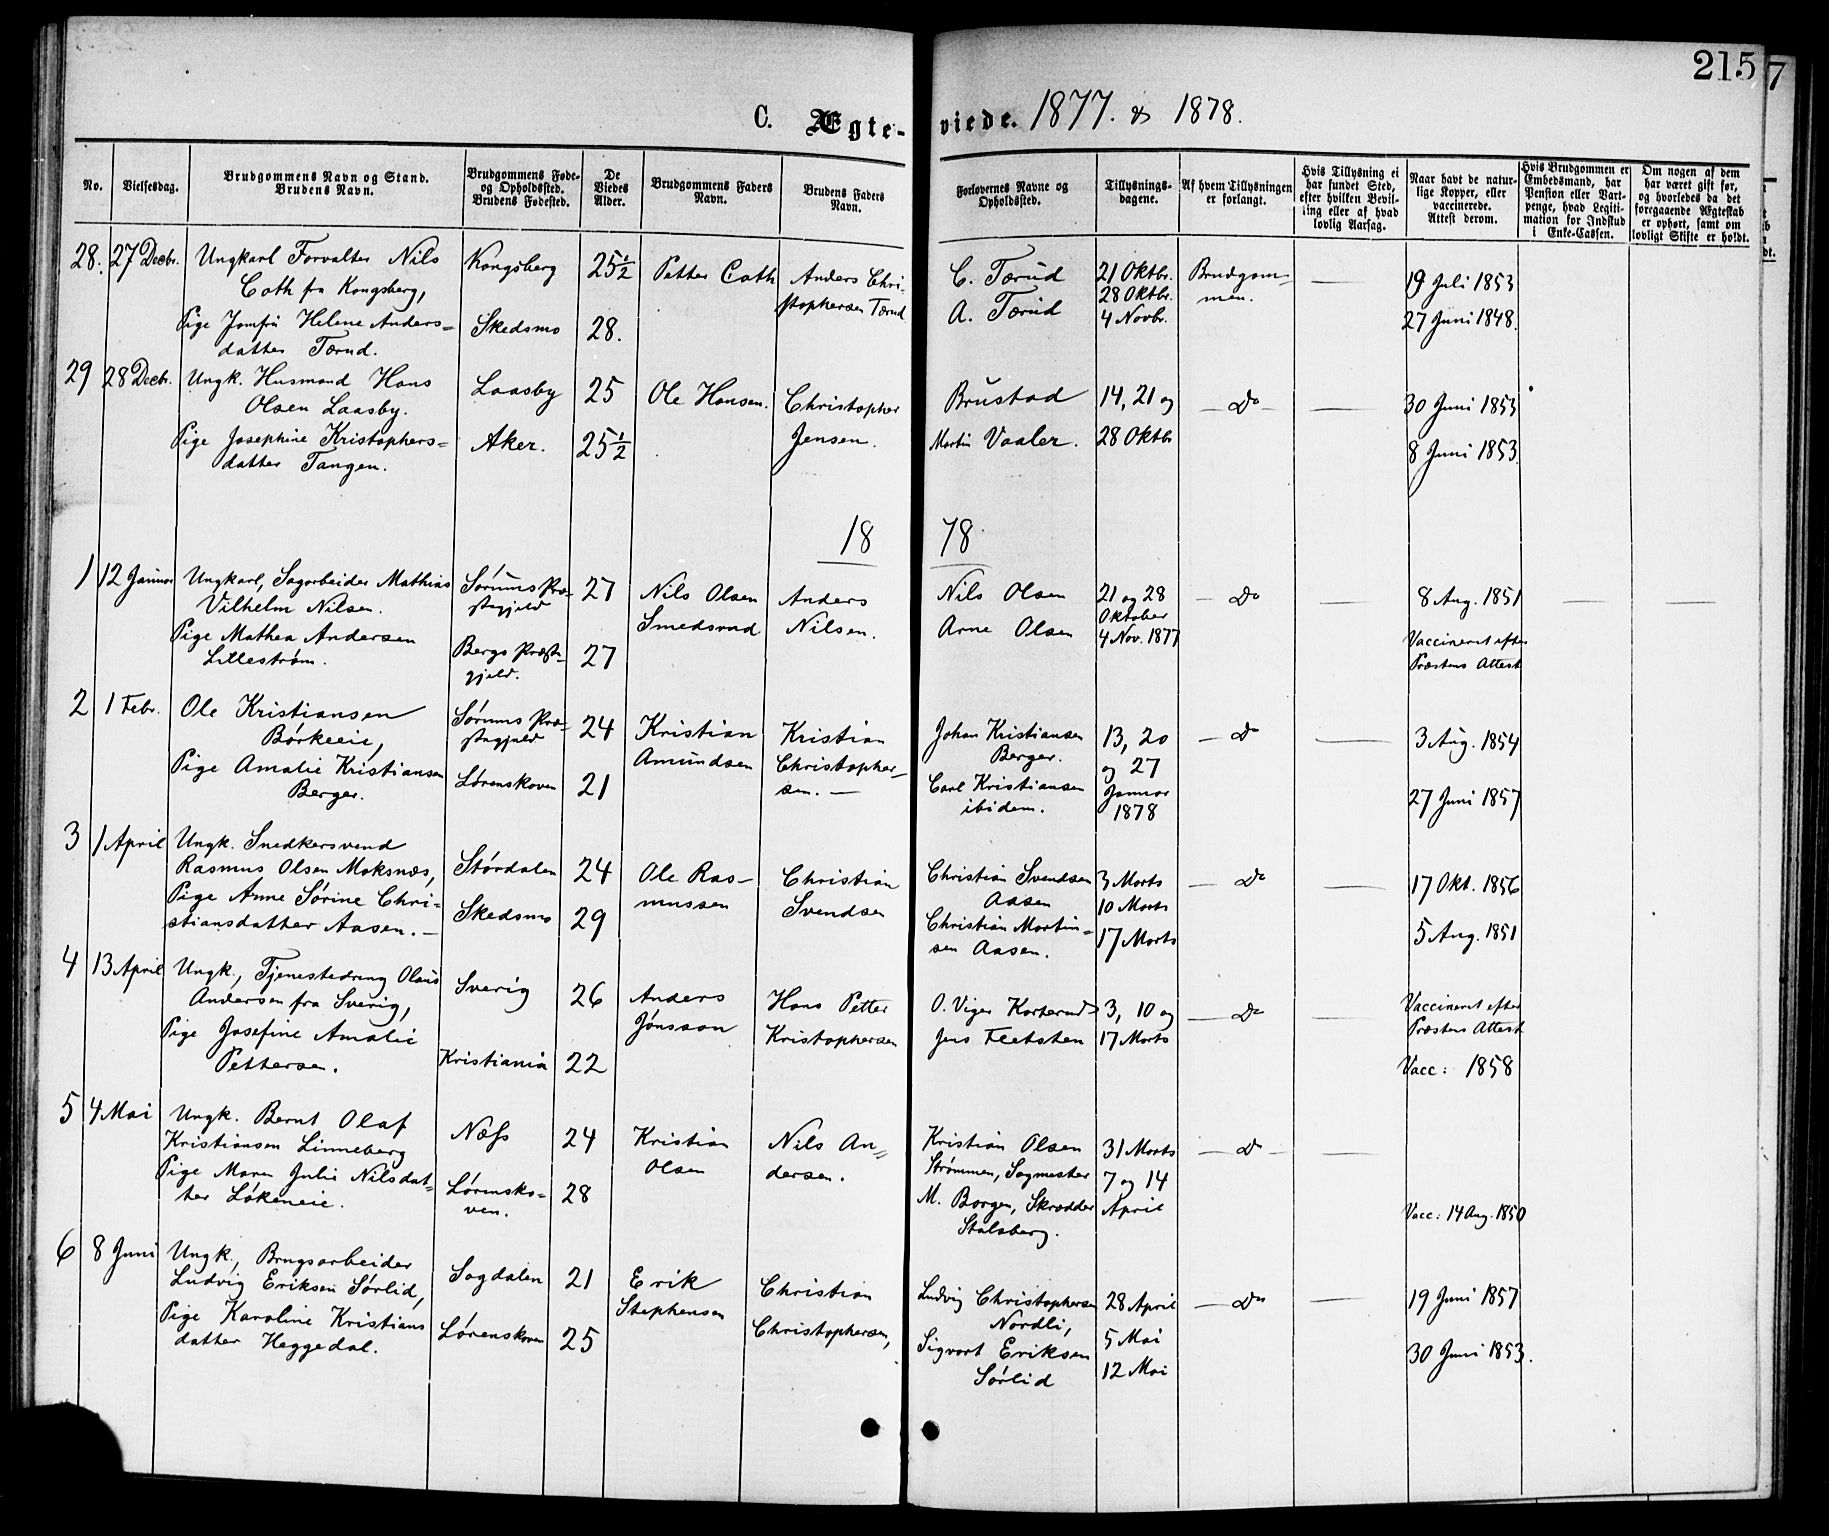 215
7
C. Ægte-
viede. 1877. & 1878.
No.
Vielsesdag.
Brudgommens Navn og Stand.
Brudens Navn.
Brudgommens Føde-
og Opholdssted.
Brudens Fødested.
De
Viedes
Alder.
Brudgommens Faders
Navn.
Brudens Faders
Navn.
Forlovernes Navne og
Opholdssted.
Tillysnings-
dagene.
Af hvem Tillysningen
er forlangt.
Hvis Tillysning ei
har fundet Sted,
efter hvilken Bevil-
ling eller af hvad
lovlig Aarsag.
Naar havt de natur-
lige Kopper, eller
vaccinerede.
Attest derom.
Hvis Brudgommen er
Embedsmand, har
Pension eller Vart-
penge, hvad Legiti-
mation for Indskud
i Enke-Cassen.
Om nogen af dem
har været gift før,
og hvorledes da det
foregaaende Ægteskab
er ophørt, samt om
lovligt Skifte er holdt.
28. 27 Decbr. Ungkarl Forvalter Nils Kongsberg 25½ Petter Coth Anders Chri- C. Tærud 21 Oktbr. Brudgom- — 19 Juli 1853
Coth fra Kongsberg, stophersen Tærud A. Tærud 28 Oktbr. men.
Pige Jomfru Helene Anders= Skedsmo 28. 4 Novbr. 27 Juni 1848.
datter Tærud.
29 28 Decb. Ungk. Husmand Hans Laasby 25 Ole Hansen. Christopher Brustad 14, 21 og — Do — — 30 Juni 1853
Olsen Laasby.
Pige Josephine Kristophers= Aker. 25½ Jensen. Martin Vaaler. 28 Oktbr 8 Juni 1853.
datter Tangen.
18 78
1 12 Januar Ungkarl, Sagarbeider Mathias Sørums Præ- 27 Nils Olsen Anders Nils Olsen 21 og 28 — Do — 8 Aug. 1851 — —
Vilhelm Nilsen. stegjeld Smedsrud Nilsen. Arne Olsen Oktober
Pige Mathea Andersen Bergs Præste- 27 4 Nov. 1877 Vaccineret efter
Lillestrøm. gjeld. Præstens Attest
2 1 Febr. Ole Kristiansen Sørums Præ- 24 Kristian Kristian Johan Kristiansen 13, 20 — Do — 3 Aug. 1854
Børkeeie, stegjeld Amundsen Christopher- Berger. og 27
Pige Amalie Kristiansen Lørenskoven 21 sen. — Carl Kristiansen Januar 27 Juni 1857
Berger. ibidem. 1878
3 1 April Ungk. Snedkersvend
Rasmus Olsen Moksnæs, Størdalen 24 Ole Ras- Christian Christian Svendsen 3 Marts — Do — 17 Okt. 1856
Pige Anne Sørine Chri- mussen Svendsen Aasen 10 Marts
stiansdatter Aasen. — Skedsmo 29 Christian Martin= 17 Marts 5 Aug. 1851
sen Aasen.
4 13 April Ungk., Tjenestedreng Olaus Sverig 26 Anders Hans Petter O. Viger Korterud 3, 10 og — Do — Vaccineret efter
Andersen fra Sverig, Jönsson Kristophersen Jens Fletsten 17 Marts Præstens Attest
Pige Josefine Amalie
Pettersen. Kristiania 22 Vacc: 1858
5 4 Mai Ungk. Bernt Olaf Næss 24 Kristian Nils An- Kristian Olsen 31 Marts — Do — —
Kristiansen Linneberg Olsen dersen. Strømmen, Sagmester 7 og 14
Pige Maren Julie Nilsdat= Lørensko- 28 M. Borgen, Skrædder April Vacc: 14 Aug. 1850
ter Løkeneie. ven. Stalsberg.
6 8 Juni Ungk., Brugsarbeider Sagdalen 21 Erik Christian Ludvig Christophersen 28 April — Do — 19 Juni 1857
Ludvig Eriksen Sørlid, Stephensen Christophersen, Nordli, 5 Mai
Pige Karoline Kristians Lørenskoven 25 Sigvart Eriksen 12 Mai 30 Juni 1853.
datter Heggedal. Sørlid